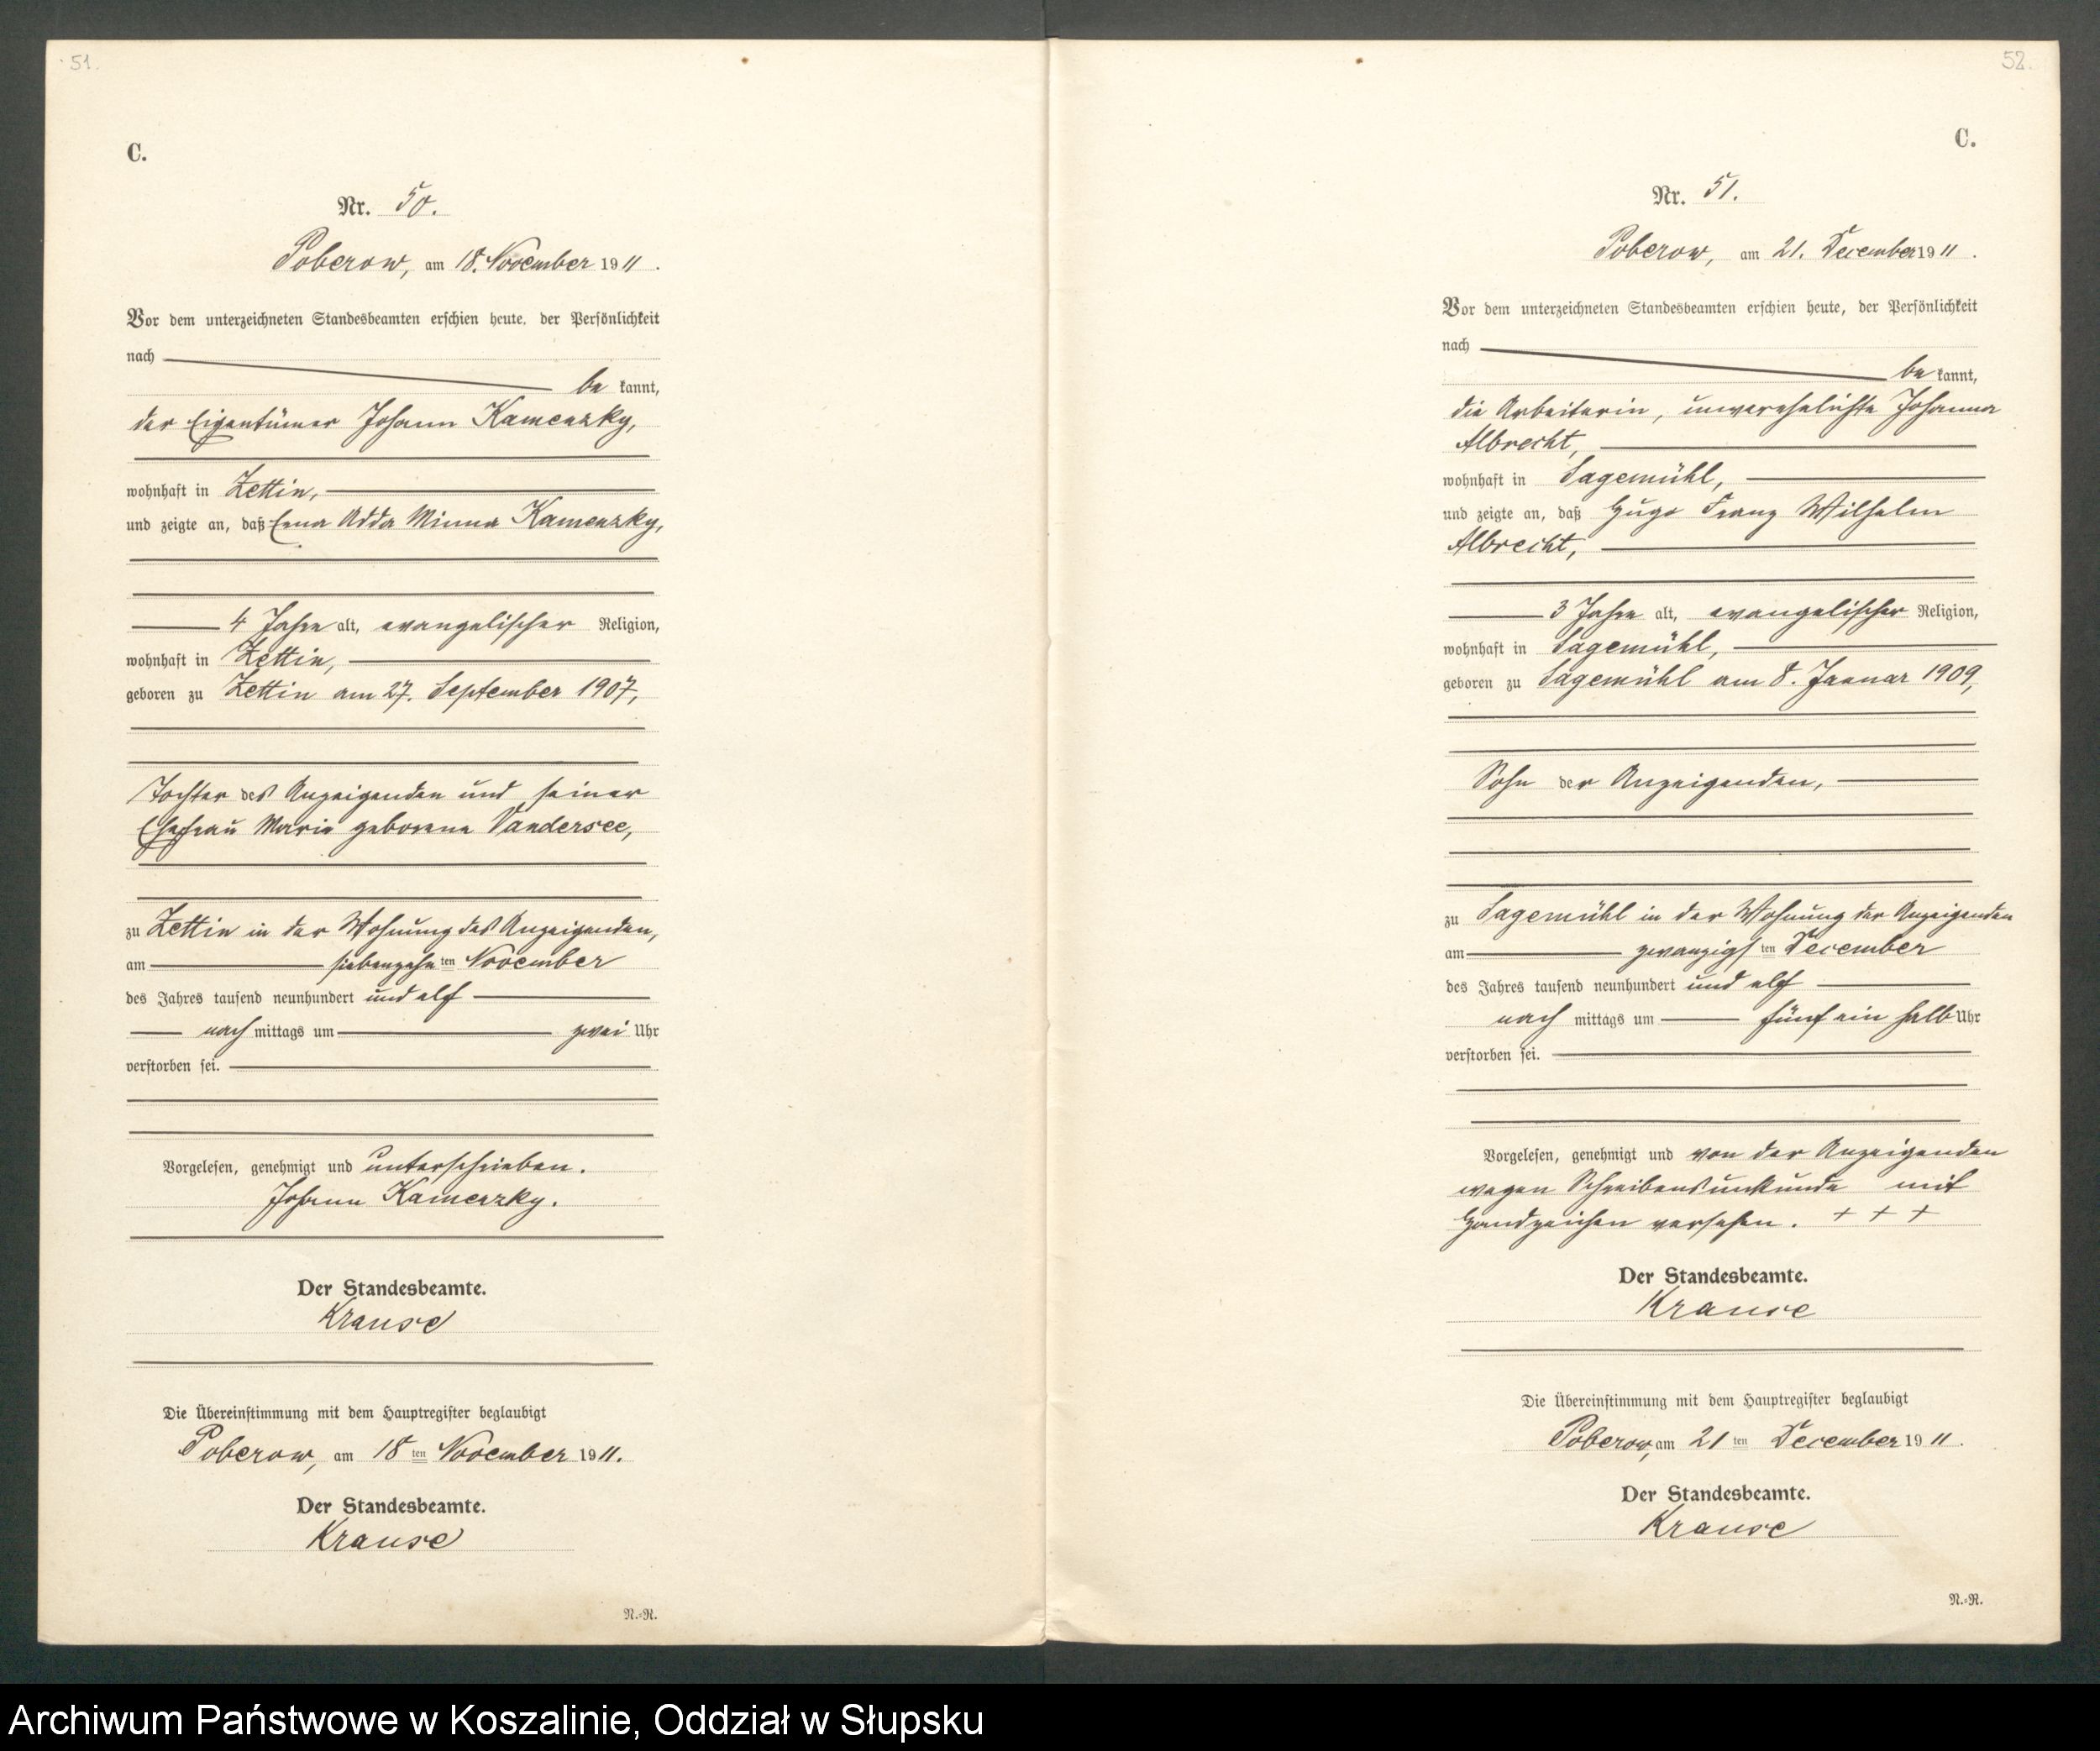 51.
C.
Nr. 50.
Poberow, am 18. November 1911.
Vor dem unterzeichneten Standesbeamten erschien heute, der Persönlichkeit
nach
be kannt,
der Eigentümer Johann Kamenzky,
wohnhaft in Zettin,
und zeigte an, daß Erna Adda Minna Kamenzky,
4 Jahre alt, evangelischer Religion,
wohnhaft in Zettin,
geboren zu Zettin am 27. September 1907,
Tochter des Anzeigenden und seiner
Ehefrau Marie geborene Vandersee,
zu Zettin in der Wohnung des Anzeigenden,
am siebenzehn ten November
des Jahres tausend neunhundert und elf
nach mittags um zwei Uhr
verstorben sei.
Vorgelesen, genehmigt und unterschrieben.
Johann Kamenzky.
Der Standesbeamte.
Krause
Die Übereinstimmung mit dem Hauptregister beglaubigt
Poberow, am 18 ten November 1911.
Der Standesbeamte.
Krause
N.=R.
52.
C.
Nr. 51.
Poberow, am 21. December 1911.
Vor dem unterzeichneten Standesbeamten erschien heute, der Persönlichkeit
nach
be kannt,
die Arbeiterin, unverehelichte Johanna
Albrecht,
wohnhaft in Sagemühl,
und zeigte an, daß Hugo Franz Wilhelm
Albrecht,
3 Jahre alt, evangelischer Religion,
wohnhaft in Sagemühl,
geboren zu Sagemühl am 8. Januar 1909,
Sohn der Anzeigenden,
zu Sagemühl in der Wohnung der Anzeigenden
am zwanzigs ten December
des Jahres tausend neunhundert und elf
nach mittags um fünf ein halb Uhr
verstorben sei.
Vorgelesen, genehmigt und von der Anzeigenden
wegen Schreibensunkunde mit
Handzeichen versehen. + + +
Der Standesbeamte.
Krause
Die Übereinstimmung mit dem Hauptregister beglaubigt
Poberow, am 21 ten December 1911.
Der Standesbeamte.
Krause
N.=R.
Archiwum Państwowe w Koszalinie, Oddział w Słupsku